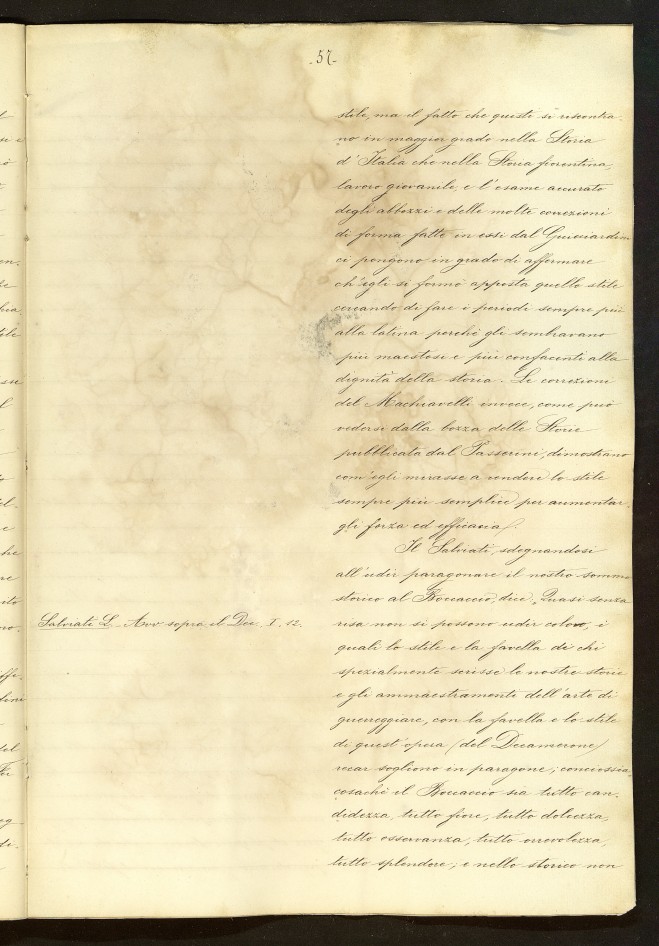 - 57 -
stile, ma il fatto che questi si riscontra-
no in maggior grado nella Storia
d'Italia che nella Storia fiorentina,
lavoro giovanile, e l'esame accurato
degli abbozzi e delle molte correzioni
di forma fatte in essi dal Guicciardini
ci pongono in grado di affermare
ch'egli si formò apposta quello stile
cercando di fare i periodi sempre più
alla latina perchè gli sembravano
più maestosi e più confacenti alla
dignità della storia. Le correzioni
del Machiavelli invece, come può
vedersi dalla bozza delle Storie
pubblicata dal Passerini, dimostrano
com'egli mirasse a rendere lo stile
sempre più semplice per aumentar-
gli forza ed efficacia.
Il Salviati, sdegnandosi
all'udir paragonare il nostro sommo
storico al Boccaccio, dice „Quasi senza
Salviati L. Avv. sopra il Dec. I. 12.
risa non si possono udir coloro, i
quali lo stile e la favella di chi
spezialmente scrisse le nostre storie
e gli ammaestramenti dell'arte di
guerreggiare, con la favella e lo stile
di quest'opera (del Decamerone)
recar sogliono in paragone; conciossia-
cosachè il Boccaccio sia tutto can-
didezza, tutto fiore, tutto dolcezza,
tutto osservanza, tutto orrevolezza,
tutto splendore; e nello storico non